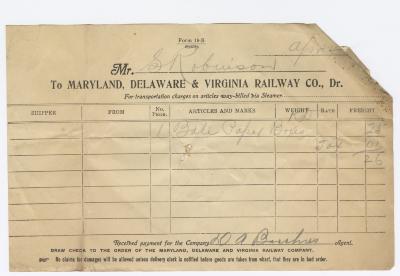 Form 19-S
Apr
Mr. G Robinson
To MARYLAND, DELAWARE & VIRGINIA RAILWAY CO., Dr.
For transportation charges on articles way-billed this Steamer.
SHIPPER FROM No. Pkgs. ARTICLES AND MARKS WEIGHT RATE FREIGHT
1 Bale Paper Boxes 25
Tax
26
Received payment for the Company Agent.
DRAW CHECK TO THE ORDER OF THE MARYLAND, DELAWARE AND VIRGINIA RAILWAY COMPANY.
No claims for damages will be allowed unless delivery clerk is notified before goods are taken from wharf, that they are in bad order.